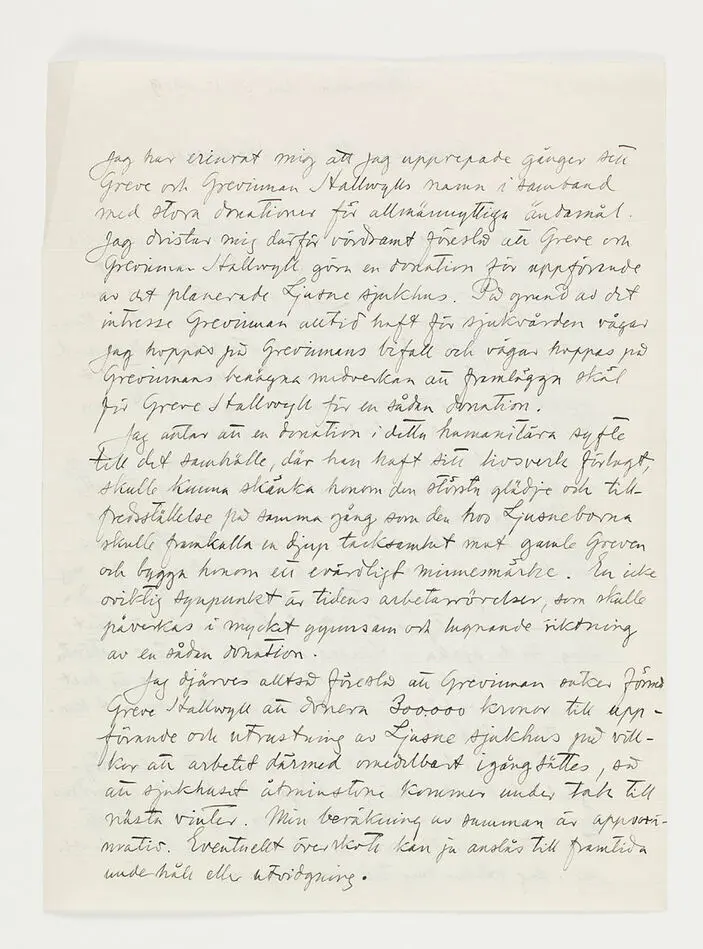 Jag har erinrat mig att jag upprepade gånger sett
Greve och Grevinnan Hallwylls namn i samband
med stora donationer för allmännyttiga ändamål.
Jag dristar mig därför vördsamt föreslå att Greve och
Grevinnan Hallwyll göra en donation för uppförande
av det planerade Ljusne sjukhus. På grund av det
intresse Grevinnan alltid haft för sjukvården vågar
jag hoppas på Grevinnans bifall och vågar hoppas på
Grevinnans benägna medverkan att framlägga skäl
för Greve Hallwyll för en sådan donation.
Jag antar att en donation i detta humanitära syfte
till det samhälle, där han haft sitt livsverk förlagt,
skulle kunna skänka honom den största glädje och till-
fredsställelse på samma gång som den hos Ljusneborna
skulle framkalla en djup tacksamhet mot gamle Greven
och bygga honom ett evärdligt minnesmärke. En icke
oviktig synpunkt är tidens arbetarrörelser, som skulle
påverkas i mycket gynnsam och lugnande riktning
av en sådan donation.
Jag djärves alltså föreslå att Grevinnan söker förmå
Greve Hallwyll att donera 300,000 kronor till upp-
förande och utrustning av Ljusne sjukhus på vill-
kor att arbetet därmed omedelbart igångsättes, så
att sjukhuset åtminstone kommer under tak till
nästa vinter. Min beräkning av summan är approxi-
mativ. Eventuellt överskott kan ju anslås till framtida
underhåll eller utvidgning.